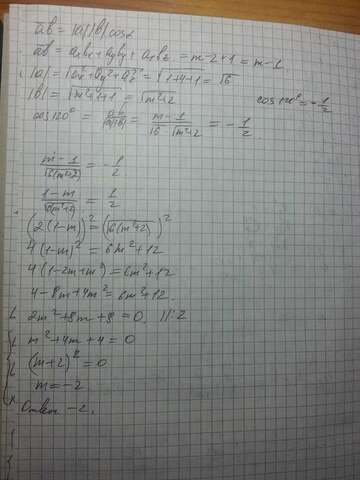 ab = |a||b| cosα
ab = aₓbₓ + a_yb_y + a_zb_z = m-2+1 = m-1
|a| = √(aₓ²+a_y²+a_z²) = √(1+4+1) = √6
|b| = √(m²+1+1) = √(m²+2)
cos 120° = -1/2
cos 120° = ab/|a||b| = (m-1)/(√6 √(m²+2)) = -1/2.
(m-1)/√(6(m²+2)) = -1/2
(1-m)/√(6(m²+2)) = 1/2
(2(1-m))² = (√(6(m²+2)))²
4(1-m)² = 6m²+12
4(1-2m+m²) = 6m²+12
4-8m+4m² = 6m²+12.
2m²+8m+8=0. ||:2
m²+4m+4=0
(m+2)²=0
m=-2
Ответ -2.